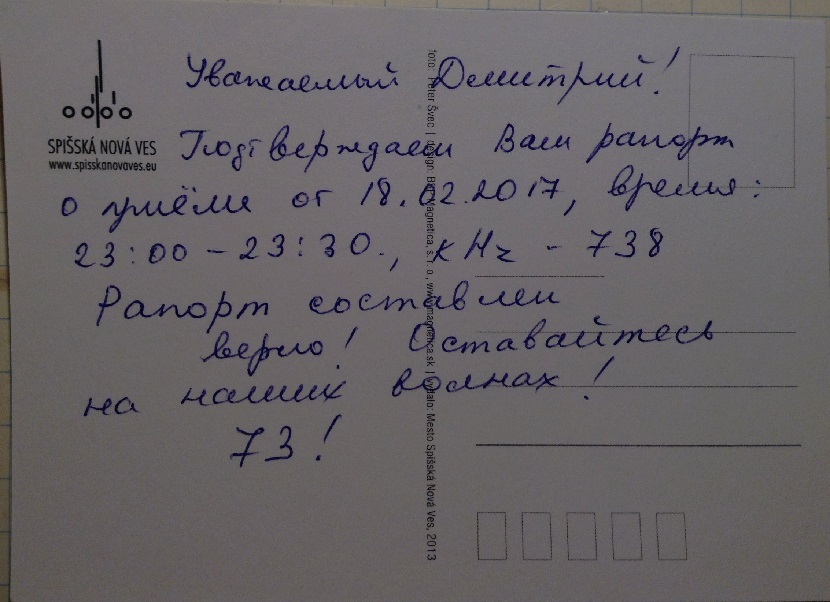 Уважаемый Дмитрий!
SPIŠSKÁ NOVÁ VES
www.spisskanovaves.eu
Подтверждаем Вам рапорт
о приёме от 18.02.2017, время:
23:00 – 23:30., kHz - 738
Рапорт составлен
верно! Оставайтесь
на наших волнах!
73!
foto: Peter Švec | design: Big Magnetica, s. r. o., www.magnetica.sk | vydalo: Mesto Spišská Nová Ves, 2013